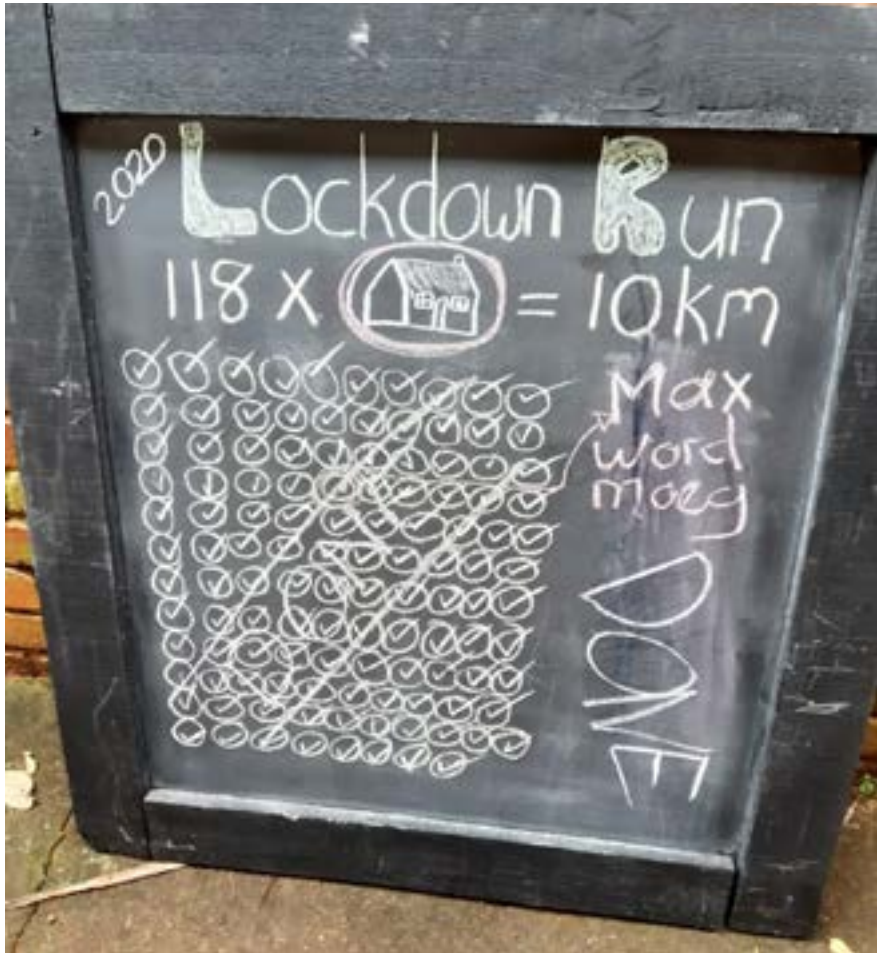 2020
Lockdown Run
118 x = 10km
Max
word
moeg
DONE